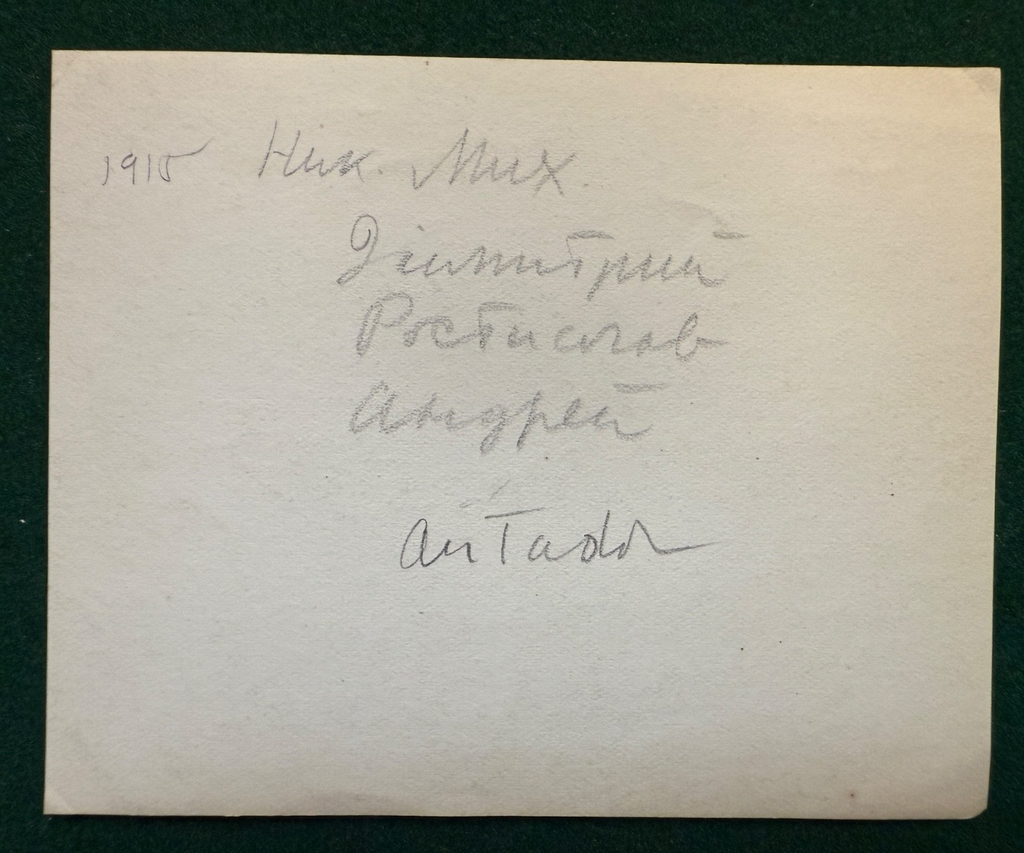 1915 Ник. Мих.
Димитрий
Ростислав
Андрей
Ай Тодор